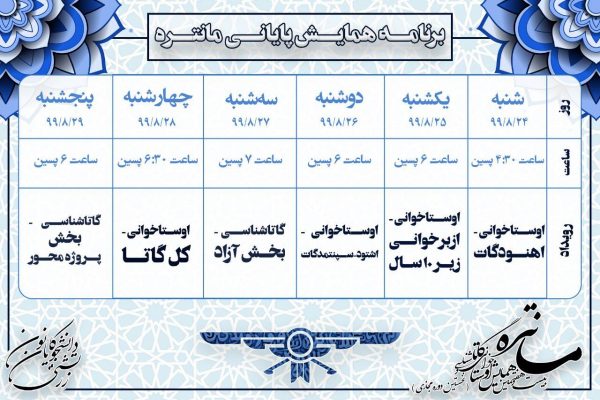 برنامه همایش پایانی مانتره
روز
شنبه
۹۹/۸/۲۴
یکشنبه
۹۹/۸/۲۵
دوشنبه
۹۹/۸/۲۶
سه‌شنبه
۹۹/۸/۲۷
چهارشنبه
۹۹/۸/۲۸
پنجشنبه
۹۹/۸/۲۹
ساعت
ساعت ۴:۳۰ پسین
ساعت ۶ پسین
ساعت ۶ پسین
ساعت ۷ پسین
ساعت ۶:۳۰ پسین
ساعت ۶ پسین
رویداد
اوستاخوانی-
اهنودگات
اوستاخوانی-
ازبرخوانی
زیر ۱۰ سال
اوستاخوانی -
اشتود،سپنتمدگات
گاتاشناسی -
بخش آزاد
اوستاخوانی-
کل گاتا
گاتاشناسی -
بخش
پروژه محور
مانتره
(نخستین دوره مجازی)
کانون
دانشجویان
زرتشتی